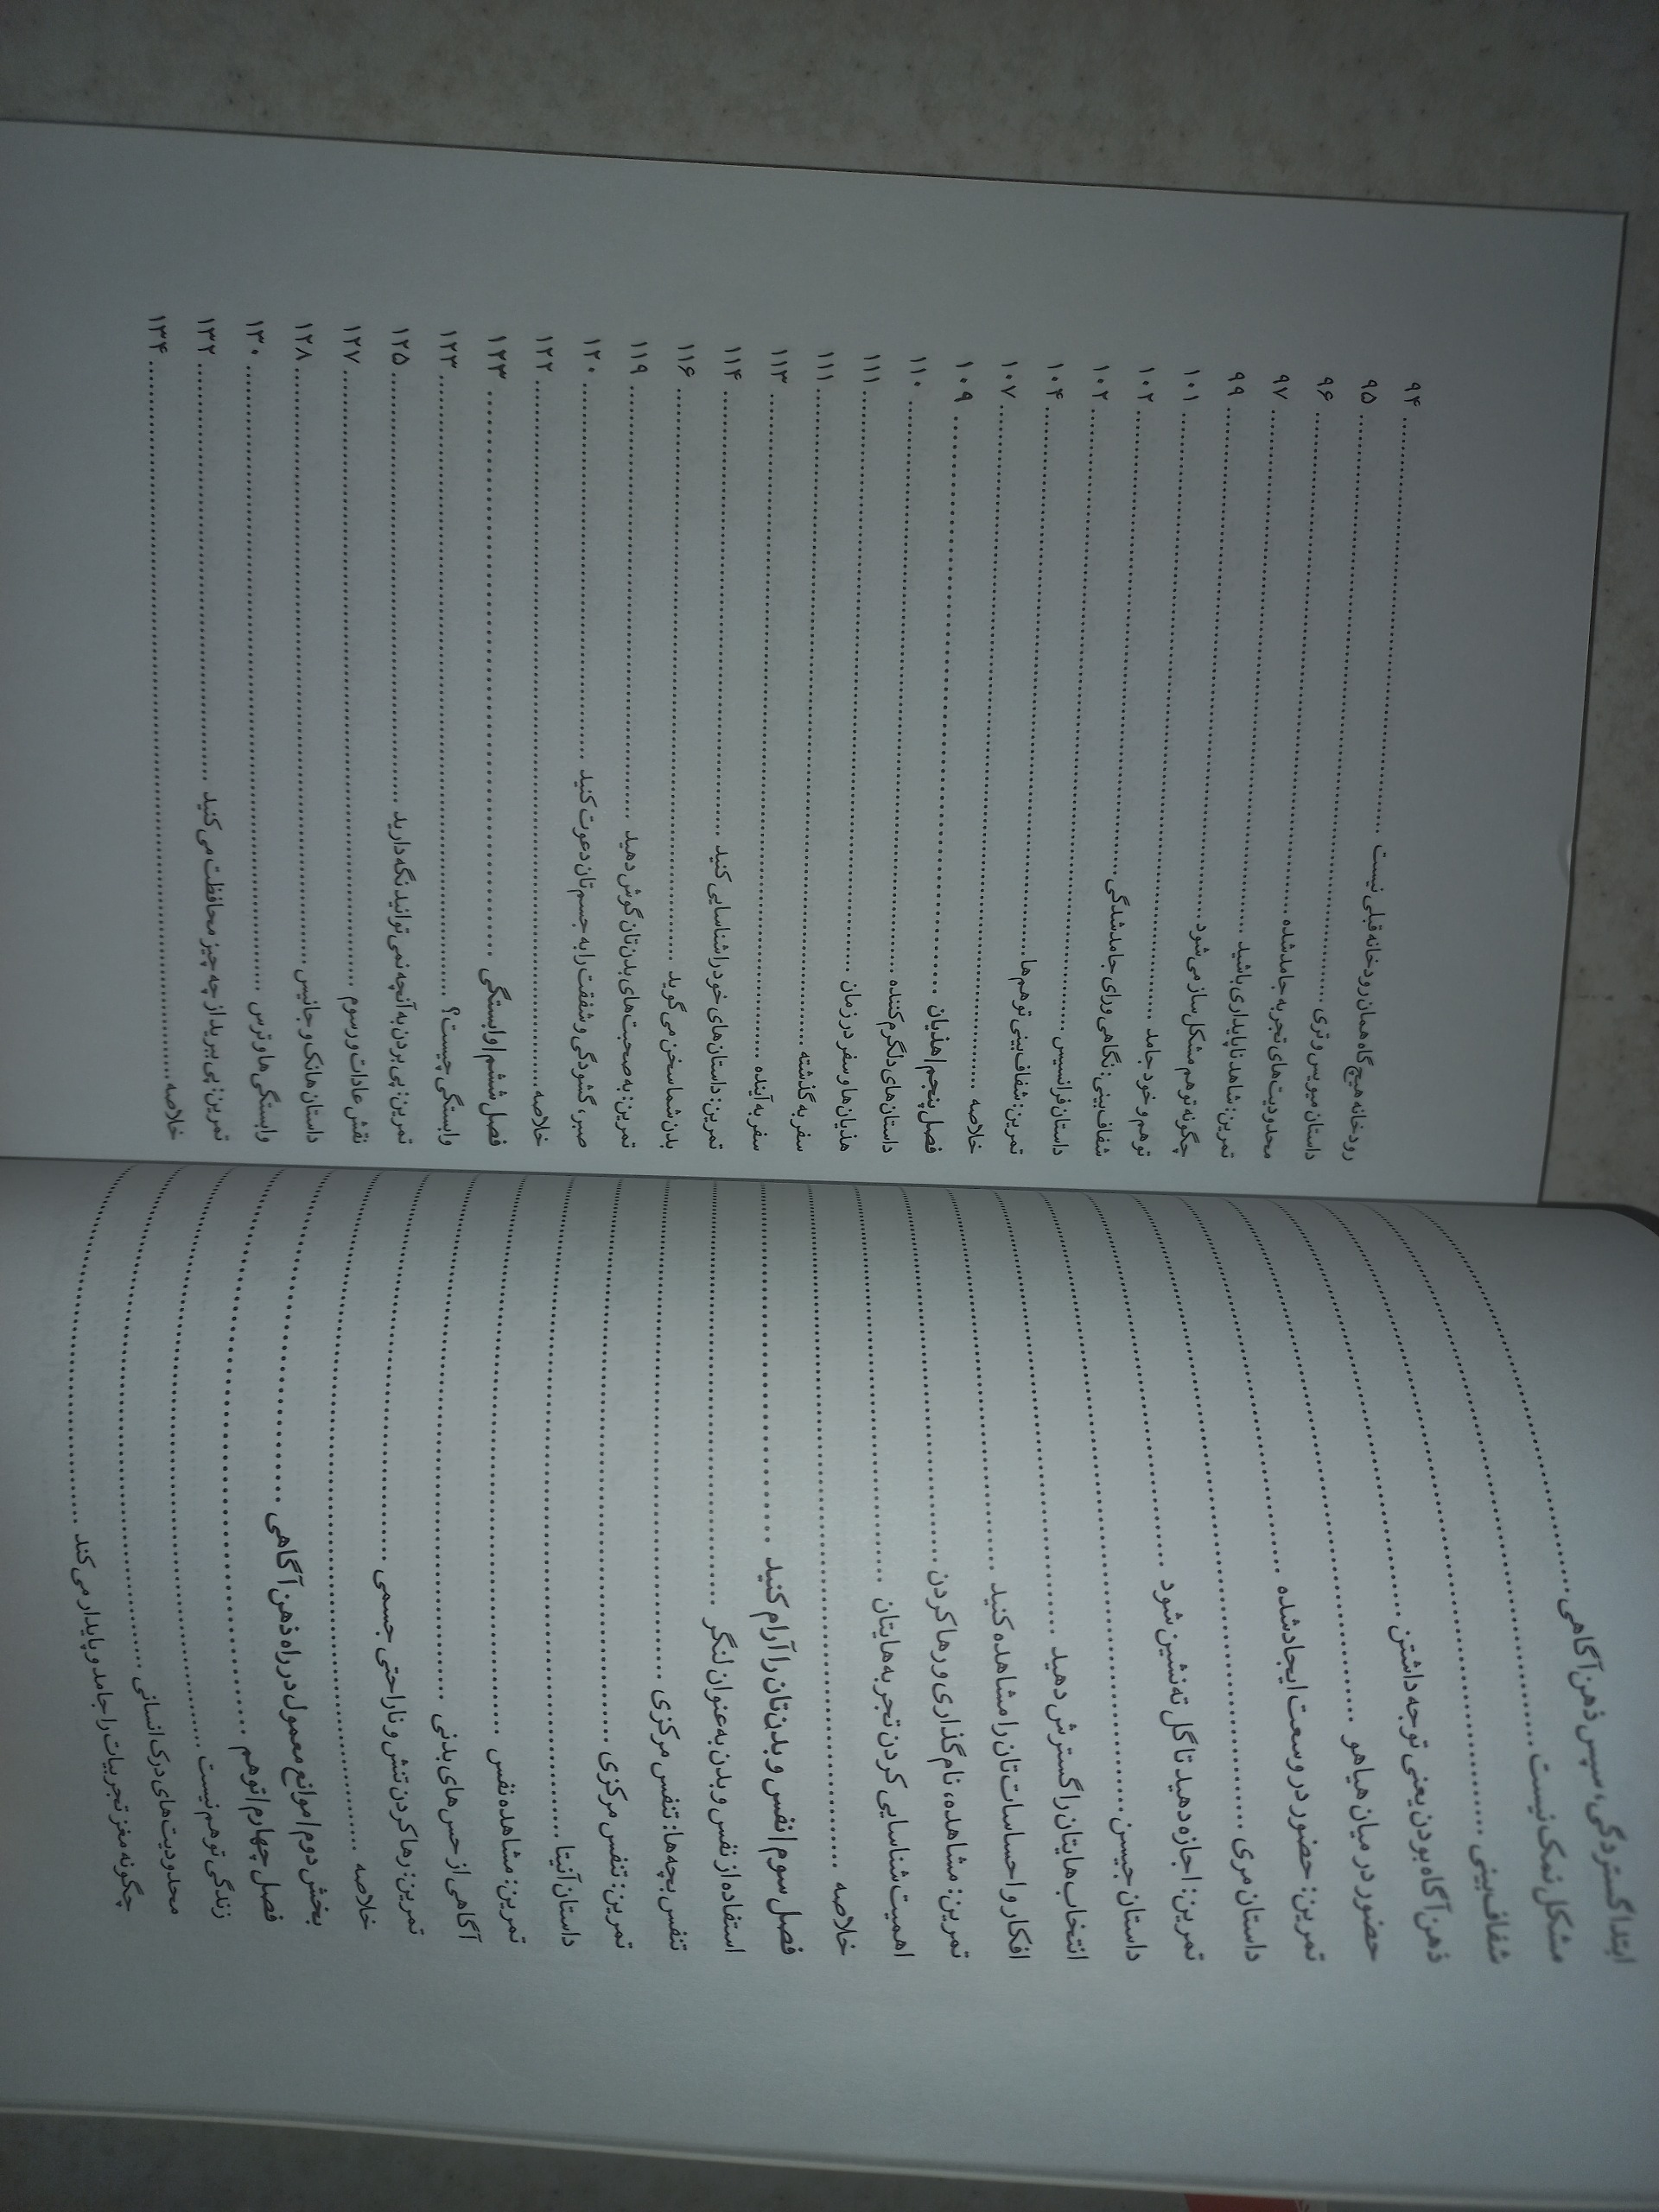 ابتدا گستردگی، سپس ذهن‌آگاهی
مشکل نمک نیست
شفاف‌بینی
ذهن‌آگاه بودن یعنی توجه داشتن
حضور در میان هیاهو
تمرین: حضور در وسعت ایجادشده
داستان مری
تمرین: اجازه دهید تا گل ته‌نشین شود
داستان جیسن
انتخاب‌هایتان را گسترش دهید
افکار و احساسات‌تان را مشاهده کنید
تمرین: مشاهده، نام‌گذاری و رها کردن
اهمیت شناسایی کردن تجربه‌هایتان
خلاصه
فصل سوم | نفس و بدن‌تان را آرام کنید
استفاده از نفس و بدن به‌عنوان لنگر
تنفس بچه‌ها: تنفس مرکزی
تمرین: تنفس مرکزی
داستان آنیتا
تمرین: مشاهده نفس
آگاهی از حس‌های بدنی
تمرین: رها کردن تنش و ناراحتی جسمی
خلاصه
بخش دوم | موانع معمول در راه ذهن‌آگاهی
فصل چهارم | توهم
زندگی توهم نیست
محدودیت‌های درک انسانی
چگونه مغز تجربیات را جامد و پایدار می‌کند
۹۴
رودخانه هیچ‌گاه همان رودخانه قبلی نیست ۹۵
داستان میویس و تری ۹۶
محدودیت‌های تجربه جامدشده ۹۷
تمرین: شاهد ناپایداری باشید ۹۹
چگونه توهم مشکل‌ساز می‌شود ۱۰۱
توهم و خود جامد ۱۰۲
شفاف‌بینی: نگاهی ورای جامدشدگی ۱۰۲
داستان فرانسیس ۱۰۴
تمرین: شفاف‌بینی توهم‌ها ۱۰۷
خلاصه ۱۰۹
فصل پنجم | هذیان ۱۱۰
داستان‌های دلگرم‌کننده ۱۱۱
هذیان‌ها و سفر در زمان ۱۱۱
سفر به گذشته ۱۱۳
سفر به آینده ۱۱۴
تمرین: داستان‌های خود را شناسایی کنید ۱۱۶
بدن شما سخن می‌گوید ۱۱۹
تمرین: به صحبت‌های بدن‌تان گوش دهید ۱۲۰
صبر، گشودگی و شفقت را به جسم‌تان دعوت کنید ۱۲۲
خلاصه ۱۲۳
فصل ششم | وابستگی ۱۲۳
وابستگی چیست؟ ۱۲۵
تمرین: پی بردن به آنچه نمی‌توانید نگه دارید ۱۲۷
نقش عادات و رسوم ۱۲۸
داستان هانک و جانیس ۱۳۰
وابستگی‌ها و ترس ۱۳۲
تمرین: پی ببرید از چه چیز محافظت می‌کنید ۱۳۴
خلاصه